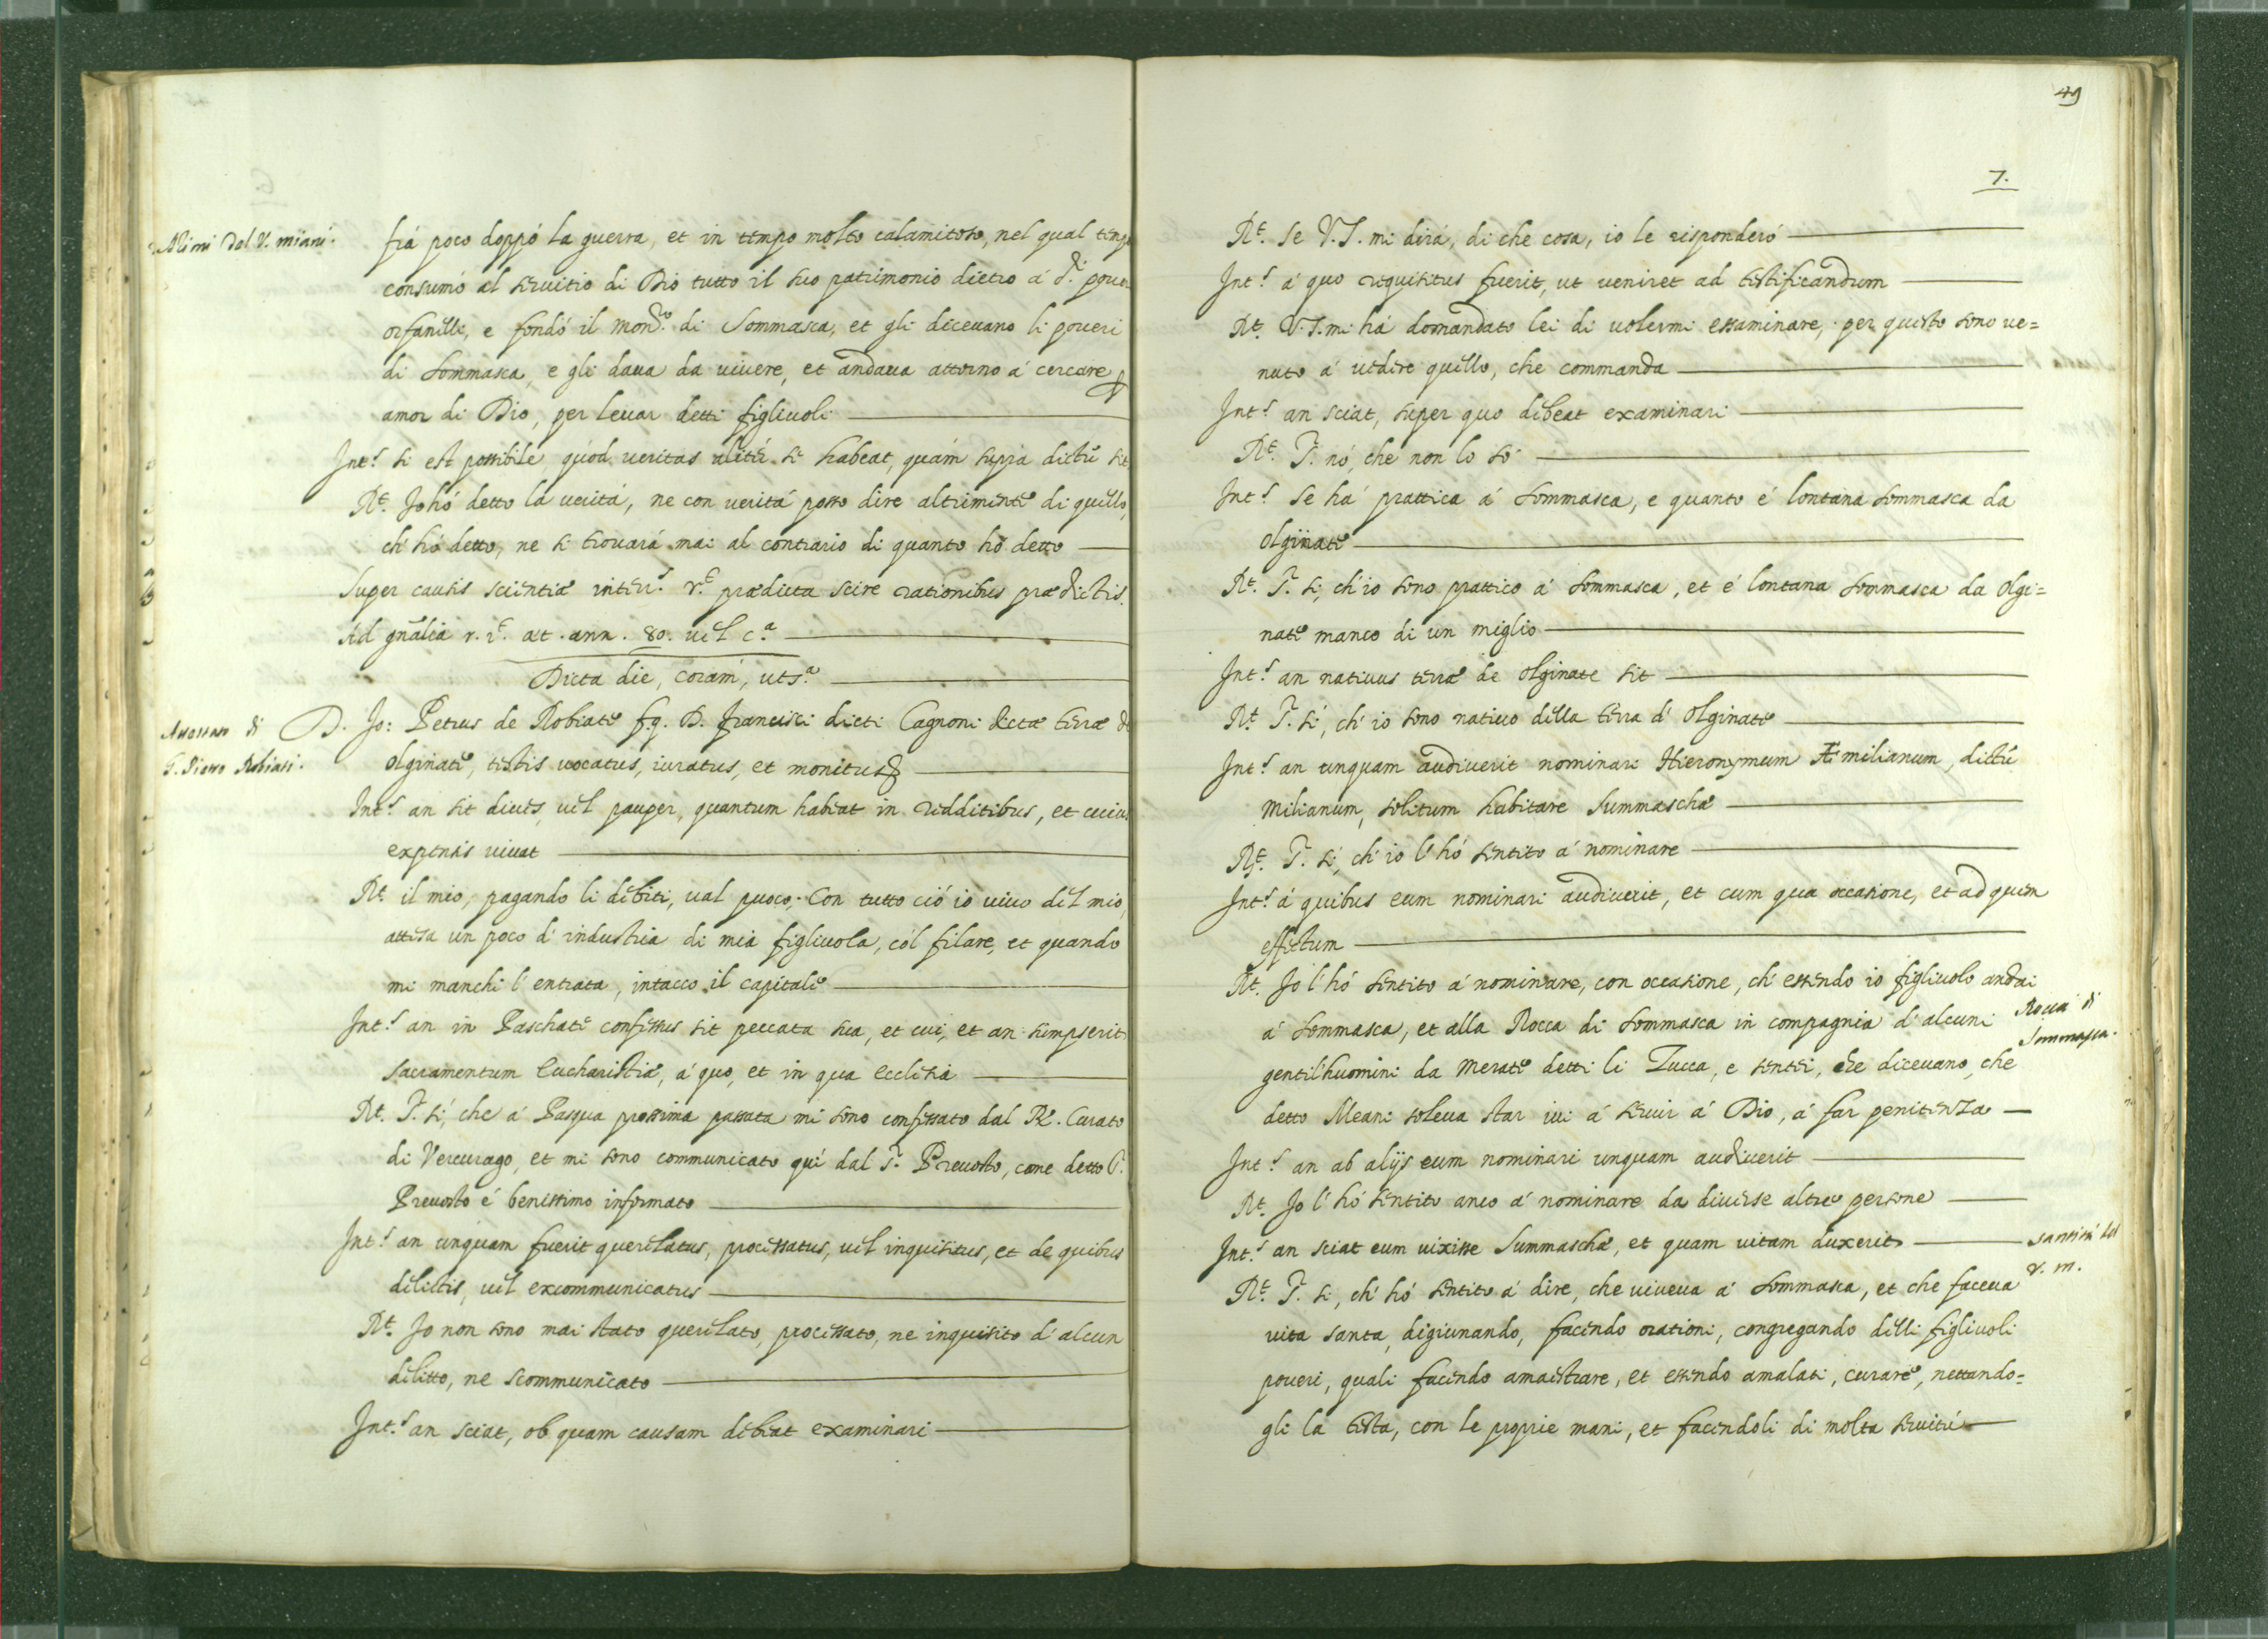 del V. miani.
frá poco doppó la guerra, et in tempo molto calamitoso, nel qual tempo
consumó al seruitio di Dio tutto il suo patrimonio dietro á d.i poueri
orfanelli, e fondó il mon.ro di Sommasca, et gli diceuano li poueri
di Sommasca, e gli daua da uiuere, et andaua attorno á cercare p
amor di Dio, per leuar detti figliuoli
Int.s si est possibile, quód ueritas alitér se habeat, quám supra dictũ sit
R.t Jo hó detto la veritá, ne con veritá posso dire altrimente di quello,
ch' hó detto, ne si trouará mai al contrario di quanto hó detto
Super causis scientiæ inter.s r.t prædicta scire rationibus prædictis.
Ad gñalia r. r.t æt. ann. 80. uel c.a
Dicta die, corám, ut s.a
Attestato di
G. Pietro Robiati.
D. Jo: Petrus de Robiate f.q. D. Francisci dicti Cagnoni dictæ terræ de
Olginate, testis uocatus, iuratus, et monitus
Int.s an sit diues, uel pauper, quantum habeat in redditibus, et cuius
expensis uiuat
R.t il mio, pagando li debiti, ual puoco; Con tutto ció io uiuo del mio,
attesa un poco d' industria di mia figliuola, col filare, et quando
mi manchi l' entrata, intacco il capitale
Int.s an in Paschate confessus sit peccata sua, et cui, et an sumpserit
sacramentum Eucharistiæ, á quo, et in qua Ecclesia
R.t S.r si, che á Pasqua prossima passata mi sono confessato dal R. Curato
di Vercurago, et mi sono communicato quí dal S.r Preuosto, come detto S.r
Preuosto é benissimo informato
Int.s an unquam fuerit querelatus, processatus, uel inquisitus, et de quibus
delictis, uel excommunicatus
R.t Jo non sono mai stato querelato, processato, ne inquisito d' alcun
delitto, ne scommunicato
Int.s an sciat, ob quam causam debeat examinari
49
7.
R.t Se V.S. mi dirá, di che cosa, io le risponderó
Int.s á quo requisitus fuerit, ut veniret ad testificandum
R.t V.S. mi há domandato lei di uolermi essaminare, per questo sono ue=
nuto á uedere quello, che commanda
Int.s an sciat, super quo debeat examinari
R.t S.r nó, che non lo só
Int.s Se há prattica á Sommasca, e quanto é lontana Sommasca da
Olginate
R.t S.r si, ch' io sono prattico á Sommasca, et é lontana Sommasca da Olgi=
nate manco di un miglio
Int.s an natiuus terræ de Olginate sit
R.t S.r si, ch' io sono natiuo della terra d' Olginate
Int.s an unquam audiuerit nominari Hieronymum Æmilianum, dictũ
Milianum, solitum habitare Summaschæ
R.t S.r si, ch' io l' hó sentito á nominare
Int.s á quibus eum nominari audiuerit, et cum qua occasione, et ad quem
effectum
R.t Jo l' hó sentito á nominare, con occasione, ch' essendo io figliuolo andai
á Sommasca, et alla Rocca di Sommasca in compagnia d' alcuni
Rocca di
Sommasca.
gentil'huomini da Merate detti li Zucca, e sentei, che diceuano, che
detto Meani soleua star iui á seruir á Dio, á far penitenza
Int.s an ab alijs eum nominari unquam audiuerit
R.t Jo l' hó sentito anco á nominare da diuerse altre persone
Int.s an sciat eum uixisse Summaschæ, et quam uitam duxerit
santitá del
V. m.
R.t S.r si, ch' hó sentito á dire, che viueua á Sommasca, et che faceua
uita santa, digiunando, facendo orationi, congregando delli figliuoli
poueri, quali facendo amaestrare, et essendo amalati, curare, nettando=
gli la testa, con le proprie mani, et facendoli di molta seruitú